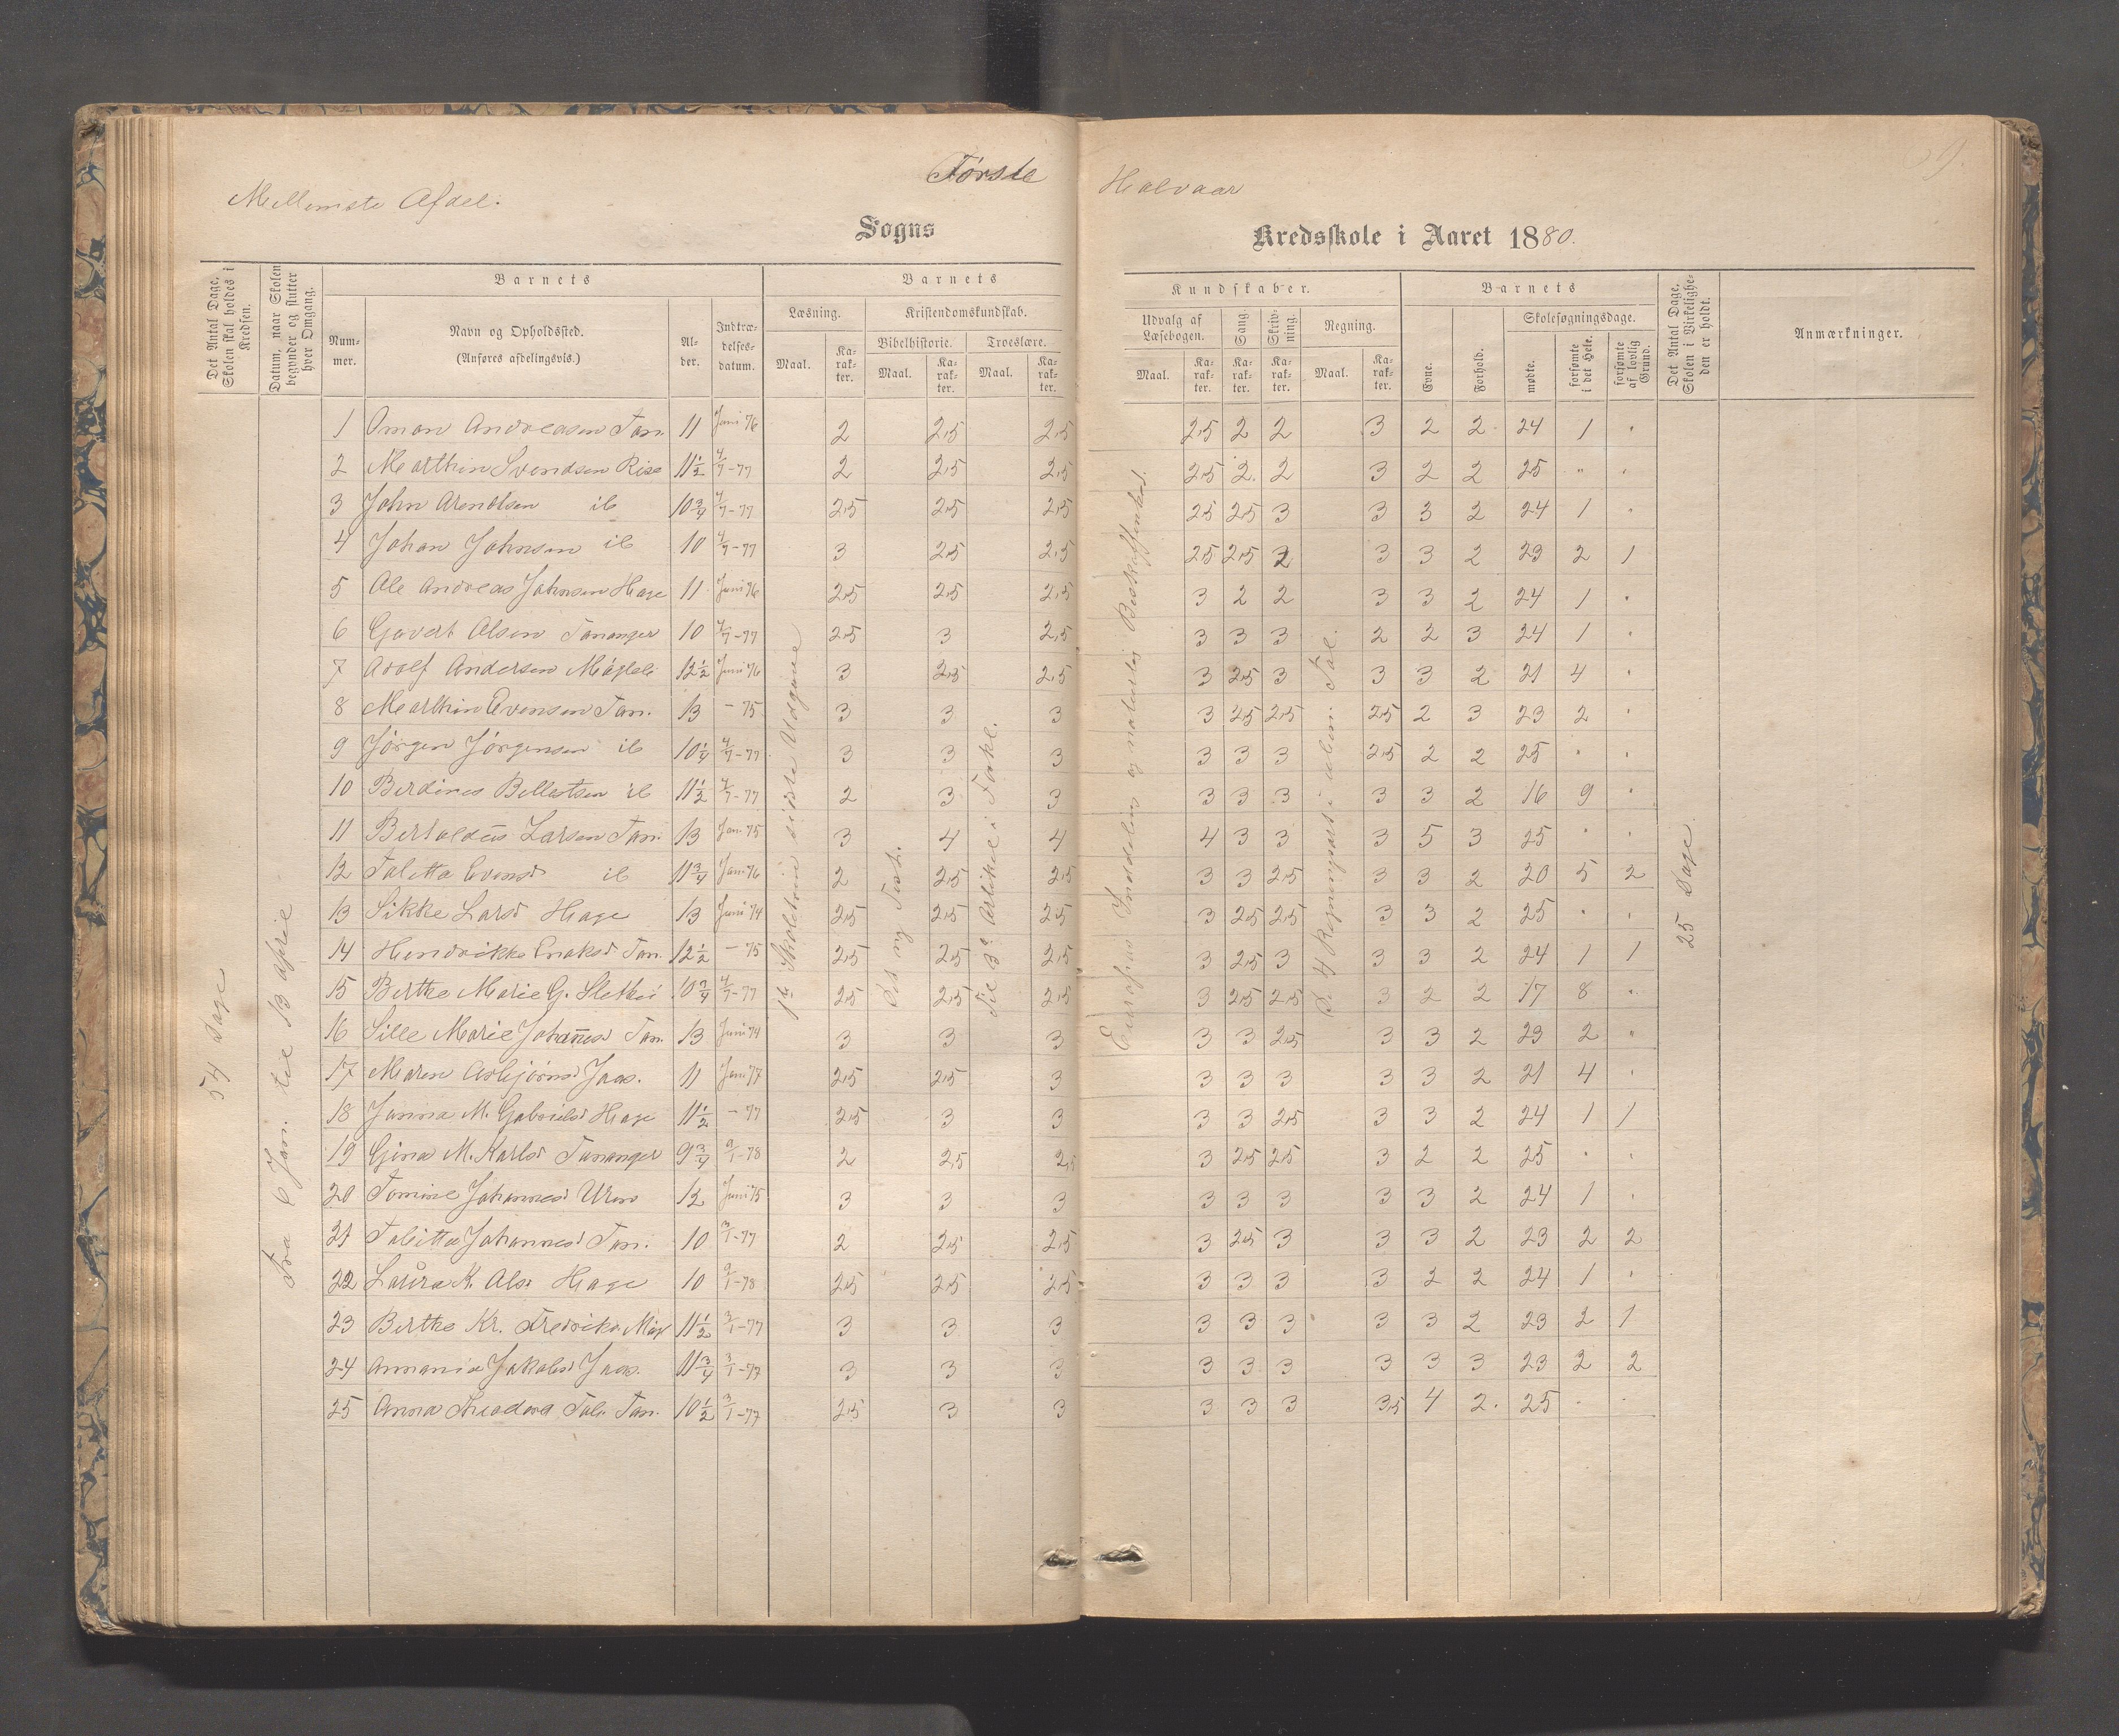 Første Halvaar
59.
Mellemste Afdel.
Sogns Kredsskole i Aaret 1880.
Det Antal Dage, Skolen skal holdes i Kredsen.
Datum, naar Skolen begynder og slutter hver Omgang.
Barnets
Nummer.
Navn og Opholdssted.
(Anføres afdelingsvis.)
Alder.
Indtrædelsesdatum.
Barnets
Læsning.
Maal.
Karakter.
Kristendomskundskab.
Bibelhistorie.
Maal.
Karakter.
Troeslære.
Maal.
Karakter.
Kundskaber.
Udvalg af Læsebogen.
Maal.
Karakter.
Sang.
Karakter.
Skrivning.
Karakter.
Regning.
Maal.
Karakter.
Barnets
Evne.
Forhold.
Skolesøgningsdage.
mødte.
forsømte i det Hele.
forsømte af lovlig Grund.
Det Antal Dage, Skolen i Virkeligheden er holdt.
Anmærkninger.
54 Dage
Fra 6 Jan. til 13 April
Det ny Test.
Til 3die Artikel i Forkl.
25 Dage
1 Andreasen Tan. 11 Juni 76 2 2,5 2,5 2,5 2 2 3 2 2 24 1 "
2 Marthin Svendsen Risa 11½ 4/7-77 2 2,5 2,5 2,5 2 2 3 2 2 25 " "
3 John Arentsen ib 10¾ 4/7-77 2,5 2,5 2,5 2,5 2,5 3 3 3 2 24 1 "
4 Johan Johnsen ib 10 4/7-77 3 2,5 2,5 2,5 2,5 2 3 3 2 23 2 1
5 Ole Andreas Johnsen Hage 11 Juni 76 2,5 2,5 2,5 3 2 2 3 3 2 24 1 "
6 Govert Olsen Tananger 10 4/7-77 2,5 3 2,5 3 3 3 2 2 3 24 1 "
7 Adolf Andersen 12½ Juni 76 3 2,5 2,5 3 2,5 3 3 3 2 21 4 "
8 Marthin Evensen Tan. 13 - 75 3 3 3 3 2,5 2,5 2,5 2 3 23 2 "
9 Jørgen Jørgensen ib 10¼ 4/7-77 3 3 3 3 3 3 2,5 2 2 25 " "
10 Berdines ib 11½ 4/7-77 2 3 3 3 3 3 3 3 2 16 9 "
11 Larsen Tan. 13 Jan. 75 3 4 4 4 3 3 3 5 3 25 " "
12 Talitta ib 11¾ Jan. 76 2 2,5 2,5 3 3 2,5 3 3 2 20 5 2
13 Sikke Larsd Hage 13 Juni 74 2,5 2,5 2,5 3 2,5 2,5 3 3 2 25 " "
14 Hendrikke Enoksd Tan. 12½ - 75 2,5 2,5 2,5 3 2,5 3 3 3 2 24 1 1
15 Berthe Marie G. 10¾ 4/7-77 2,5 2,5 2,5 3 2,5 2,5 3 2 2 17 8 "
16 Sille Marie Johannesd Tan. 13 Juni 74 3 3 3 3 3 2,5 3 3 2 23 2 "
17 Maren Asbjørnsd Jaas. 11 Jan. 77 2,5 2,5 3 3 3 3 3 3 2 21 4 "
18 Janna M. Gabrielsd Hage 11½ - 77 2,5 3 3 3 3 2,5 3 3 2 24 1 1
19 Gina M. Karlsd Tananger 9¾ 9/1-78 2 2,5 2,5 3 2,5 2,5 3 2 2 25 " "
20 Tomine Johannesd 12 Juni 75 3 3 3 3 3 3 3 3 2 24 1 "
21 Talitta Johannesd Tan. 10 3/1-77 2 2,5 2,5 3 2,5 3 3 3 2 23 2 2
22 Laura K. Olsd Hage 10 9/1-78 2,5 2,5 2,5 3 3 3 3 2 2 24 1 "
23 Berthe Kr. 11½ 3/1-77 3 3 3 3 3 3 3 3 2 23 2 1
24 Jakobsd Jaas. 11¾ 3/1-77 3 3 3 3 3 3 3 3 3 23 2 2
25 Anna Tan. 10½ 3/1-77 2,5 3 3 3 3 3 3,5 4 2 25 " "